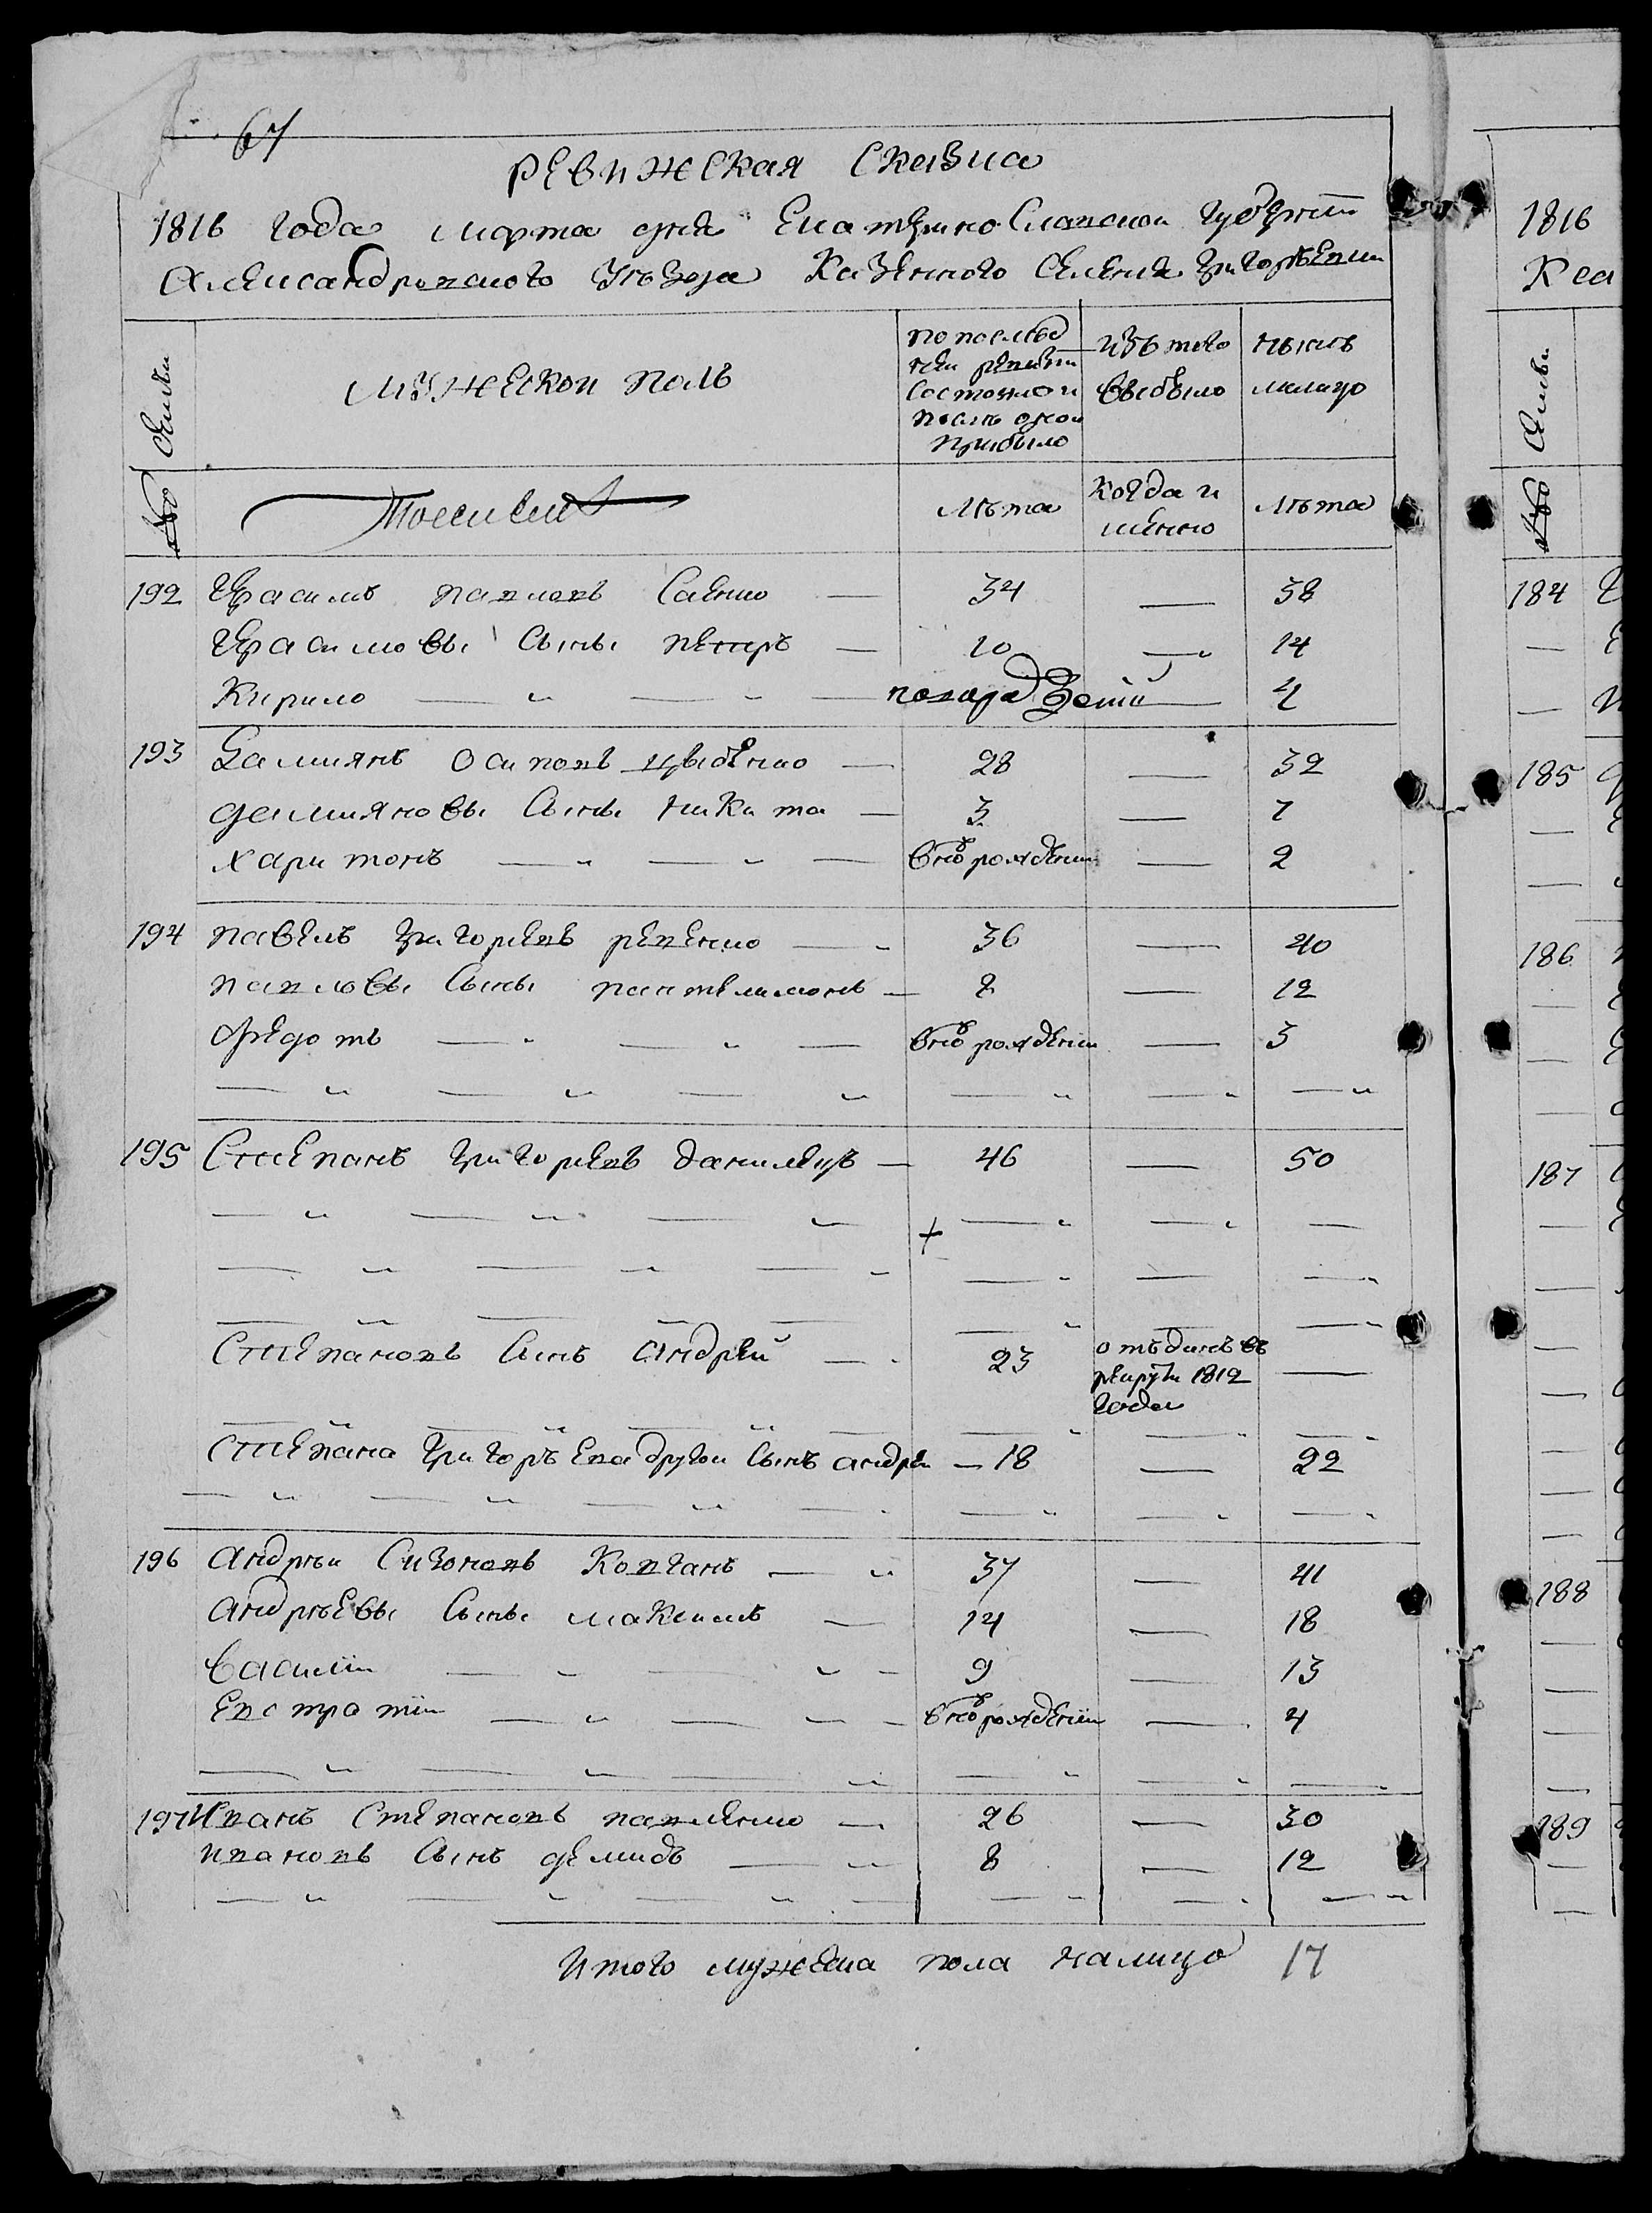 67
ревижская сказка
1816 года марта дня Екатеринославской губернии
Александровского уезда Казенного селения Григорьевки
№ Семьи
мужеской полъ
по последней ревизии состояло и после оной прибыло
изъ того выбыло
ныне налицо
лета
когда и именно
лета
192 Герасимъ павловъ Савенко — 34 — 38
Герасимовы сыны петръ — 10 — 14
Кирило — новорожденой — 4
193 Дамиянъ осиповъ — 28 — 32
дамияновы сыны никита — 3 — 7
харитонъ — вновърожденъ — 2
194 павелъ григорьевъ ревенко — 36 — 40
павловы сыны пантелимонъ — 8 — 12
федотъ — вновърожденъ — 3
195 Степанъ григорьевъ данилецъ — 46 — 50
+
Степановъ сынъ андрей — 23 отъданъ въ рекруты 1812 года —
Степана григоръева другои сынъ андрей — 18 — 22
196 андрѣй Сизоновъ Ковганъ — 37 — 41
андрѣевы сыны максимъ — 14 — 18
василiи — 9 — 13
Евстратiи — вновърожденiи — 4
197 Иванъ Степановъ павленко — 26 — 30
ивановъ сынъ демидъ — 8 — 12
Итого мужеска пола налицо 17
1816
Каз
Семьи
№
184
185
186
187
188
189